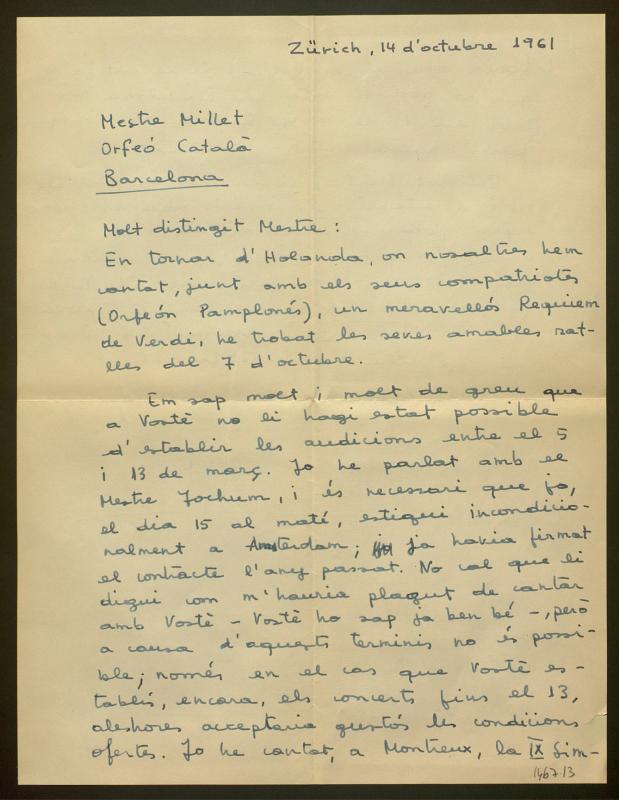 Zürich, 14 d'octubre 1961
Mestre Millet
Orfeó Català
Barcelona
Molt distingit Mestre:
En tornar d'Holanda, on nosaltres hem
cantat, junt amb els seus compatriotes
(Orfeón Pamplonés), un meravellós Requiem
de Verdi, he trobat les seves amables rat-
lles del 7 d'octubre.
Em sap molt i molt de greu que
a Vostè no li hagi estat possible
d'establir les audicions entre el 5
i 13 de març. Jo he parlat amb el
Mestre Jochum, i és necessari que jo,
el dia 15 al matí, estigui incondicio-
nalment a Amsterdam; ja havia firmat
el contracte l'any passat. No cal que li
digui com m'hauria plagut de cantar
amb Vostè - Vostè ho sap ja ben bé -, però
a causa d'aquests terminis no és possi-
ble; només en el cas que Vostè es-
tablís, encara, els concerts fins el 13,
aleshores acceptaria gustós les condicions
ofertes. Jo he cantat, a Montreux, la IX Sim-
1467/3